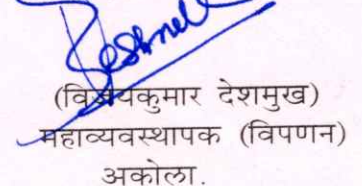 (विजयकुमार देशमुख)
महाव्यवस्थापक (विपणन)
अकोला.